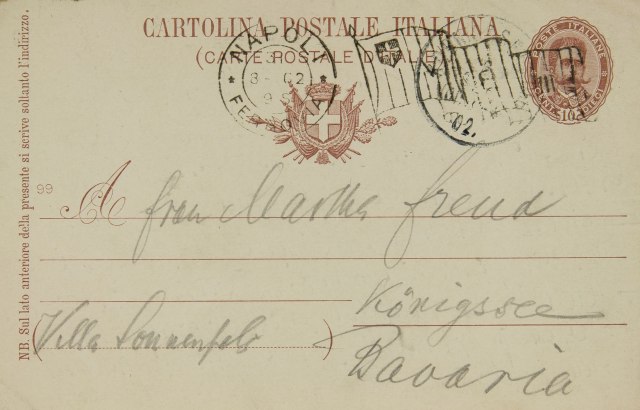 CARTOLINA POSTALE ITALIANA
(CARTE POSTALE D'ITALIE)
NAPOLI
FERROVIA
02.
POSTE ITALIANE
10
NB. Sul lato anteriore della presente si scrive soltanto l'indirizzo.
99
A frau Martha Freud
Königssee
(Villa Sonnenfels)
Bavaria